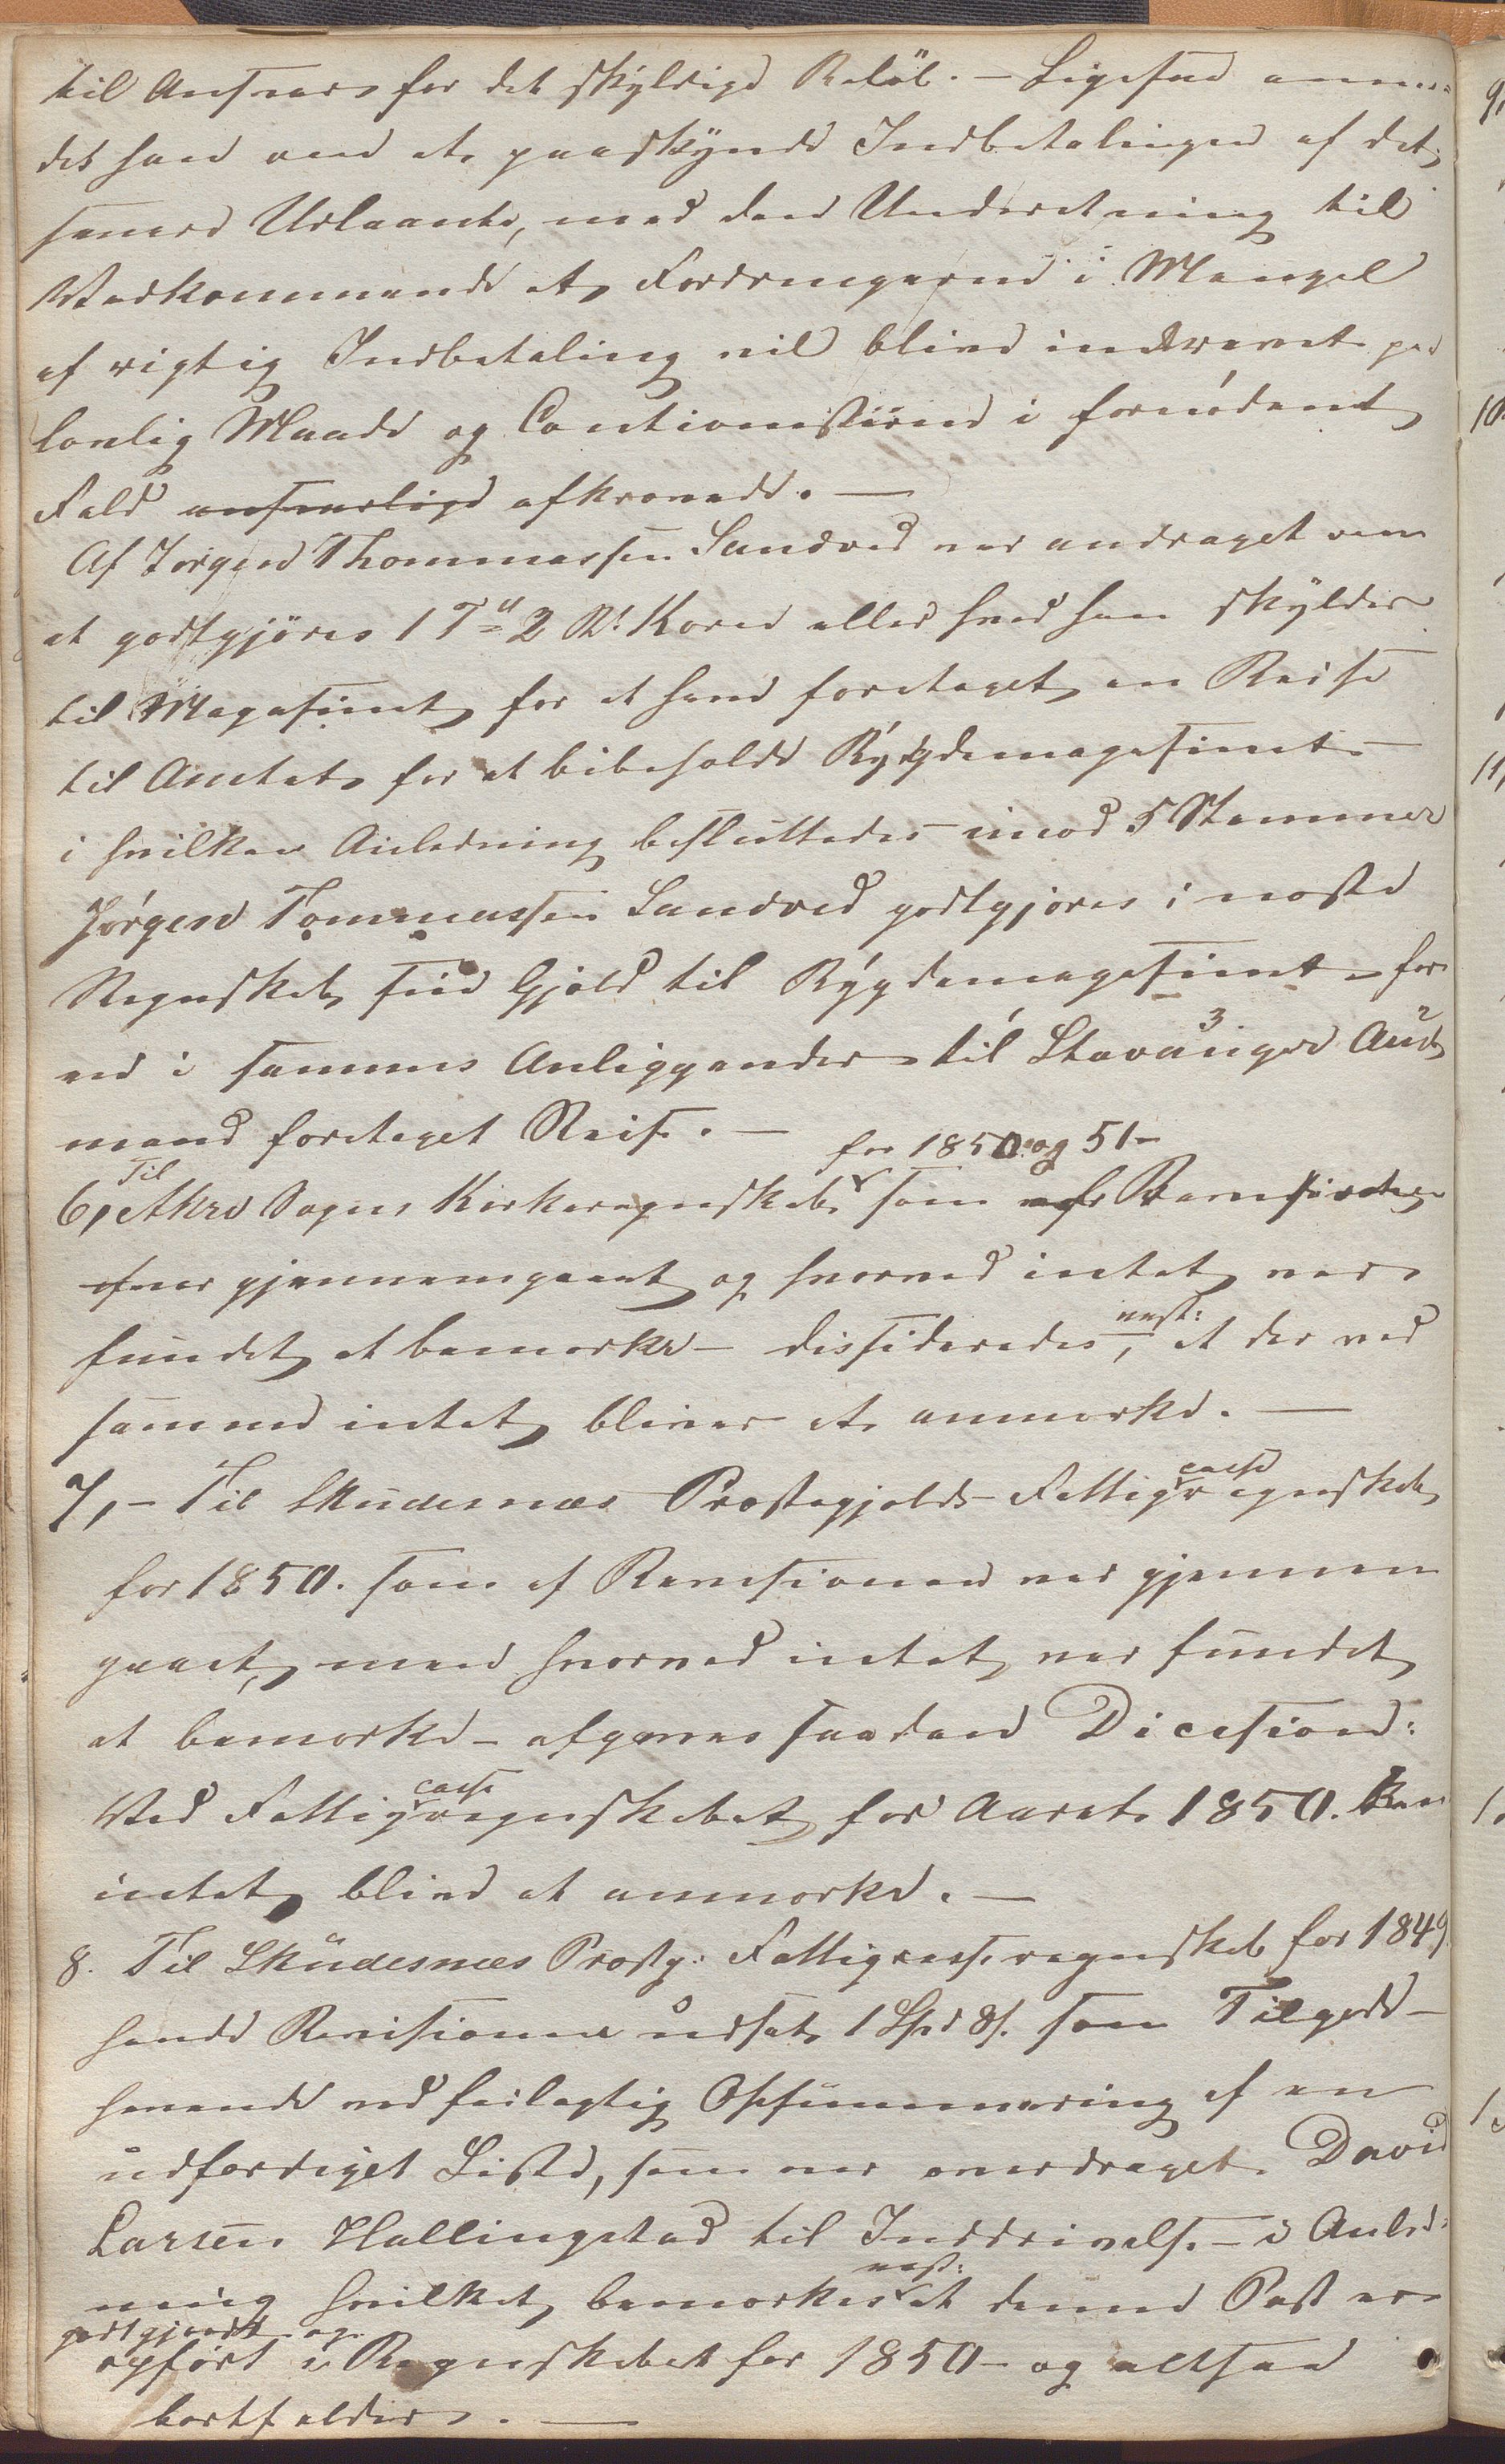 til Ansvar for det skyldige Beløb. — Ligesaa anmo-
des han om at paaskynde Indbetalingen af det
senere Udlaante, med den Underretning til
Vedkommende at Fordringerne i Mangel
af rigtig Indbetaling vil blive inddrevet paa
lovlig Maade og Cautionisterne i fornødent
Fald ansvarlige afkrævede. —
Af Jørgen Thommassen Sandved var andraget om
at godtgjøres 1 Td 2 Skr Korn eller hvad han skylder
til Magasinet for at have foretaget en Reise
til Amtet for at bibeholde Bygdemagasinet
i hvilken Anledning besluttedes imod 5 Stemmer
Jørgen Tommassen Sandved godtgjøres i næste
Regnskab sin Gjæld til Bygdemagasinet for
en i sammes Anliggender til Stavanger Amt
mand foretaget Reise. —
for 1850 og 51 -
6, Til Akre Sogns Kirkeregnskab som af Revisionen
var gjennemgaaet og hvorved intet var
fundet at bemærke - dessideredes, enst: at der ved
samme intet bliver at anmærke. —
7, - Til Skudesnæs Præstegjelds Fattigcasseregnskab
for 1850. som af Revisionen var gjennem
gaaet, men hvorved intet var fundet
at bemærke - afgaves saadan Dicesion:
Ved Fattigcasseregnskabet for Aaret 1850. kan
intet blive at anmærke. —
8. Til Skudesnæs Præstg: Fattigcasseregnskab for 1849
havde Revisionen udsat 1 Spd 8 s. som Tilgode-
havende ved feilagtig Opsummering af en
udfærdiget Liste, som var overdraget David
Larsen Hallingstad til Inddrivelse - i Anled-
ning hvilket bemærkes enst: at denne Post er
godtgjordt og
opført i Regnskabet for 1850 - og altsaa
bortfalder. —